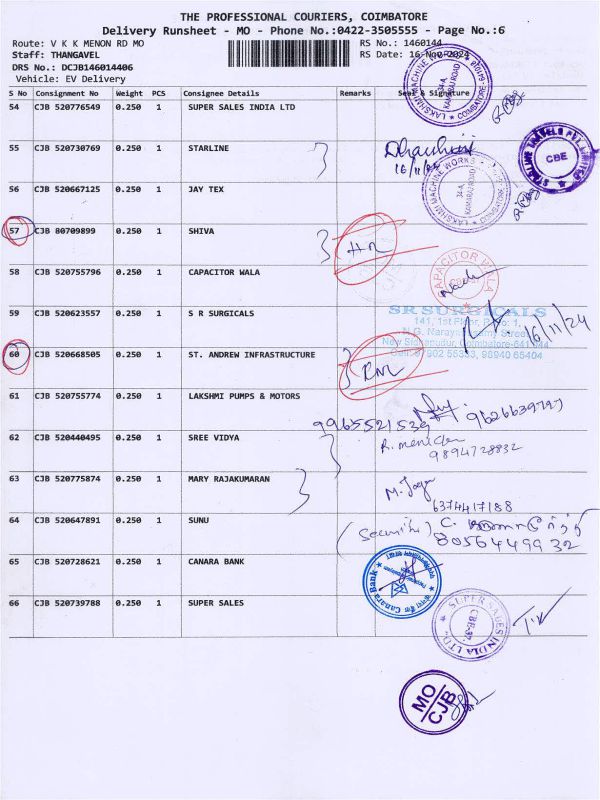 THE PROFESSIONAL COURIERS, COIMBATORE
Delivery Runsheet - MO - Phone No.:0422-3505555 - Page No.:6
Route: V K K MENON RD MO
RS No.: 1460144
Staff: THANGAVEL
RS Date: 16-Nov-2024
DRS No.: DCJB146014406
Vehicle: EV Delivery
S No Consignment No Weight PCS Consignee Details Remarks Seal & Signature
54 CJB 520776549 0.250 1 SUPER SALES INDIA LTD
55 CJB 520730769 0.250 1 STARLINE
16/11/24
CBE
56 CJB 520667125 0.250 1 JAY TEX
57 CJB 80709899 0.250 1 SHIVA
58 CJB 520755796 0.250 1 CAPACITOR WALA
CAPACITOR WALA
59 CJB 520623557 0.250 1 S R SURGICALS
SR SURGICALS
16/11/24
60 CJB 520668505 0.250 1 ST. ANDREW INFRASTRUCTURE
61 CJB 520755774 0.250 1 LAKSHMI PUMPS & MOTORS
9965521539
62 CJB 520440495 0.250 1 SREE VIDYA
9894728832
63 CJB 520775874 0.250 1 MARY RAJAKUMARAN
6374417188
64 CJB 520647891 0.250 1 SUNU
8056449932
65 CJB 520728621 0.250 1 CANARA BANK
Canara Bank
66 CJB 520739788 0.250 1 SUPER SALES
SUPER SALES INDIA LTD.
CBE-37.
MO
CJB